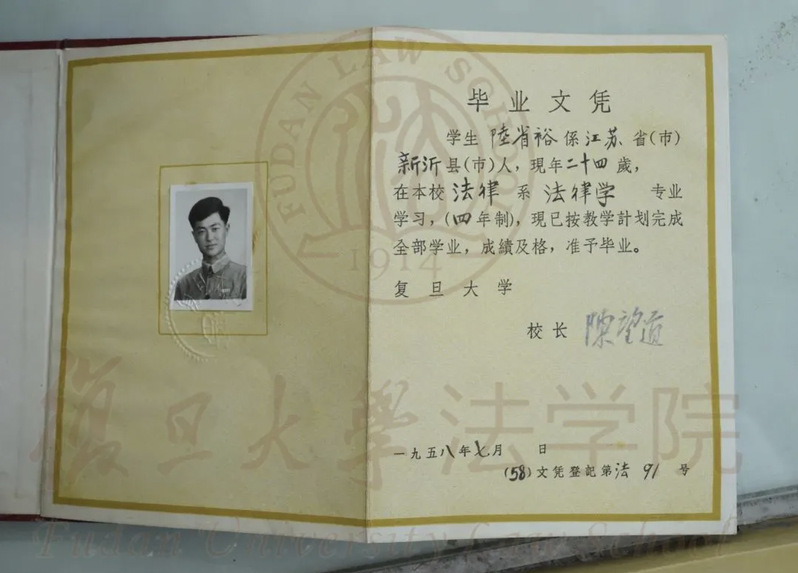 毕业文凭
学生 陸省裕 係 江苏 省(市)
新沂 县(市)人，現年 二十四 歲，
在本校 法律 系 法律学 专业
学习，(四年制)，现已按教学計划完成
全部学业，成績及格，准予毕业。
复旦大学
校长 陳望道
一九五八年七月 日
(58)文凭登記第法 91 号
FUDAN LAW SCHOOL
1914
復旦大學法学院
Fudan University Law School